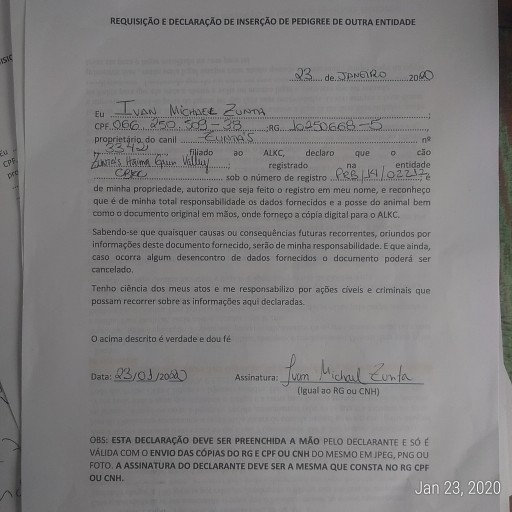 REQUISIÇÃO E DECLARAÇÃO DE INSERÇÃO DE PEDIGREE DE OUTRA ENTIDADE
23 de JANEIRO 2020
Eu IVAN MICHAEL ZUNTA
CPF 066.250.508-38 ;RG 10250668-5
proprietário do canil ZUNTA'S nº
3342 filiado ao ALKC, declaro que o cão
Zunta's Valley ; registrado na entidade
CBKC sob o número de registro e
de minha propriedade, autorizo que seja feito o registro em meu nome, e reconheço
que é de minha total responsabilidade os dados fornecidos e a posse do animal bem
como o documento original em mãos, onde forneço a cópia digital para o ALKC.
Sabendo-se que quaisquer causas ou consequências futuras recorrentes, oriundos por
informações deste documento fornecido, serão de minha responsabilidade. E que ainda,
caso ocorra algum desencontro de dados fornecidos o documento poderá ser
cancelado.
Tenho ciência dos meus atos e me responsabilizo por ações cíveis e criminais que
possam recorrer sobre as informações aqui declaradas.
O acima descrito é verdade e dou fé
Data: 23/01/2020 Assinatura: Ivan Michael Zunta
(Igual ao RG ou CNH)
OBS: ESTA DECLARAÇÃO DEVE SER PREENCHIDA A MÃO PELO DECLARANTE E SÓ É
VÁLIDA COM O ENVIO DAS CÓPIAS DO RG E CPF OU CNH DO MESMO EM JPEG, PNG OU
FOTO. A ASSINATURA DO DECLARANTE DEVE SER A MESMA QUE CONSTA NO RG CPF
OU CNH.
Jan 23, 2020